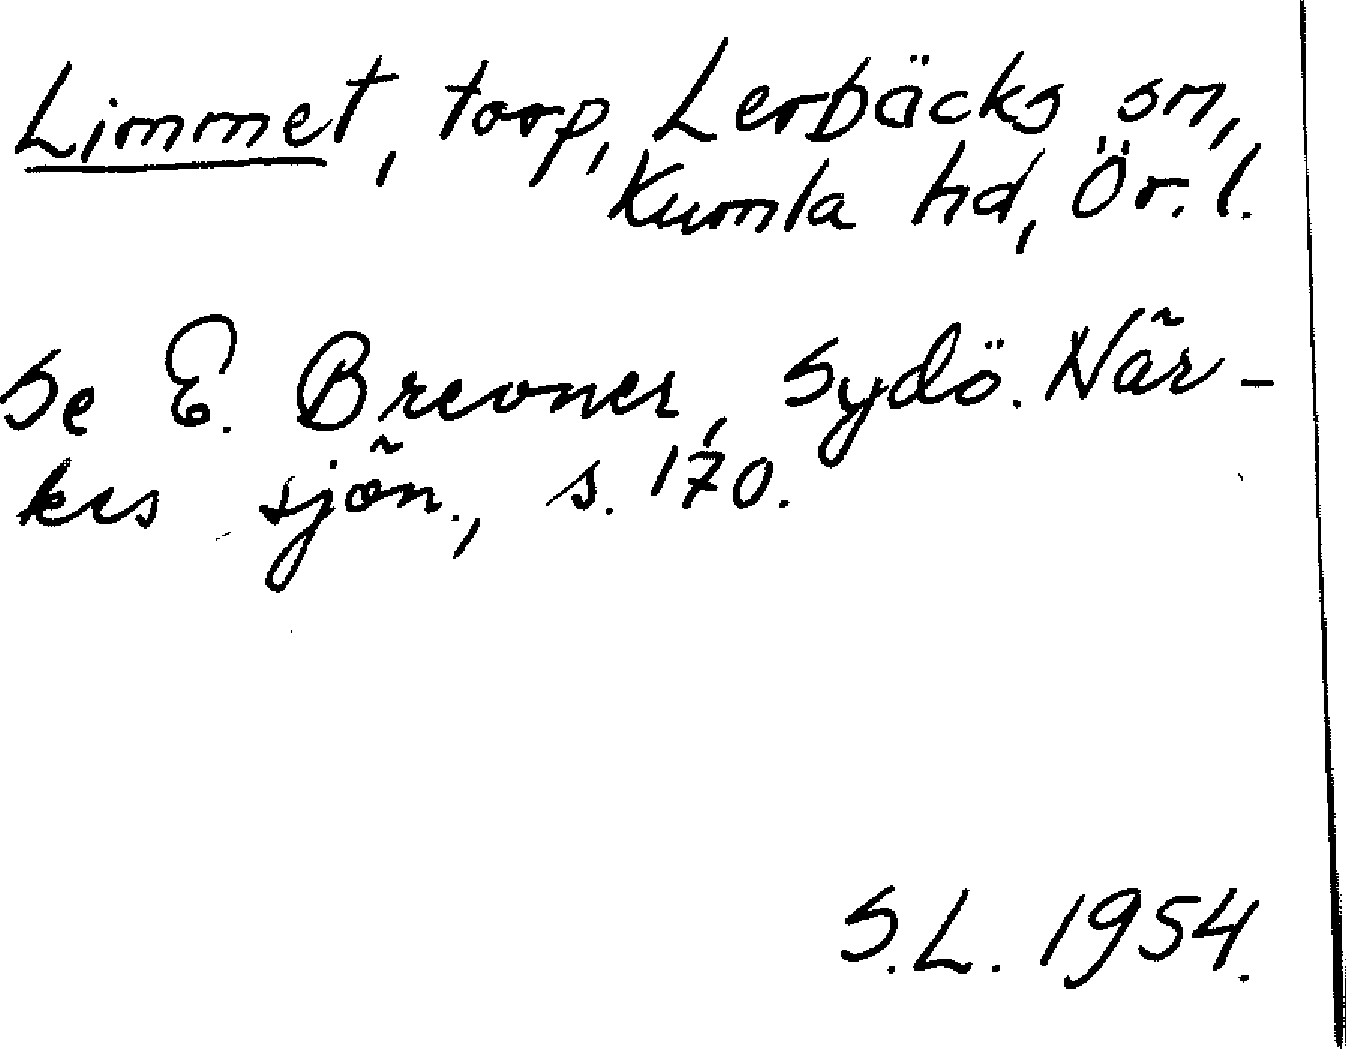 Limmet, torp, Lerbäcks sn,
Kumla hd, Ör. l.
Se E. Brevner, Sydö. När-
kes sjön., s. 170.
S.L. 1954.